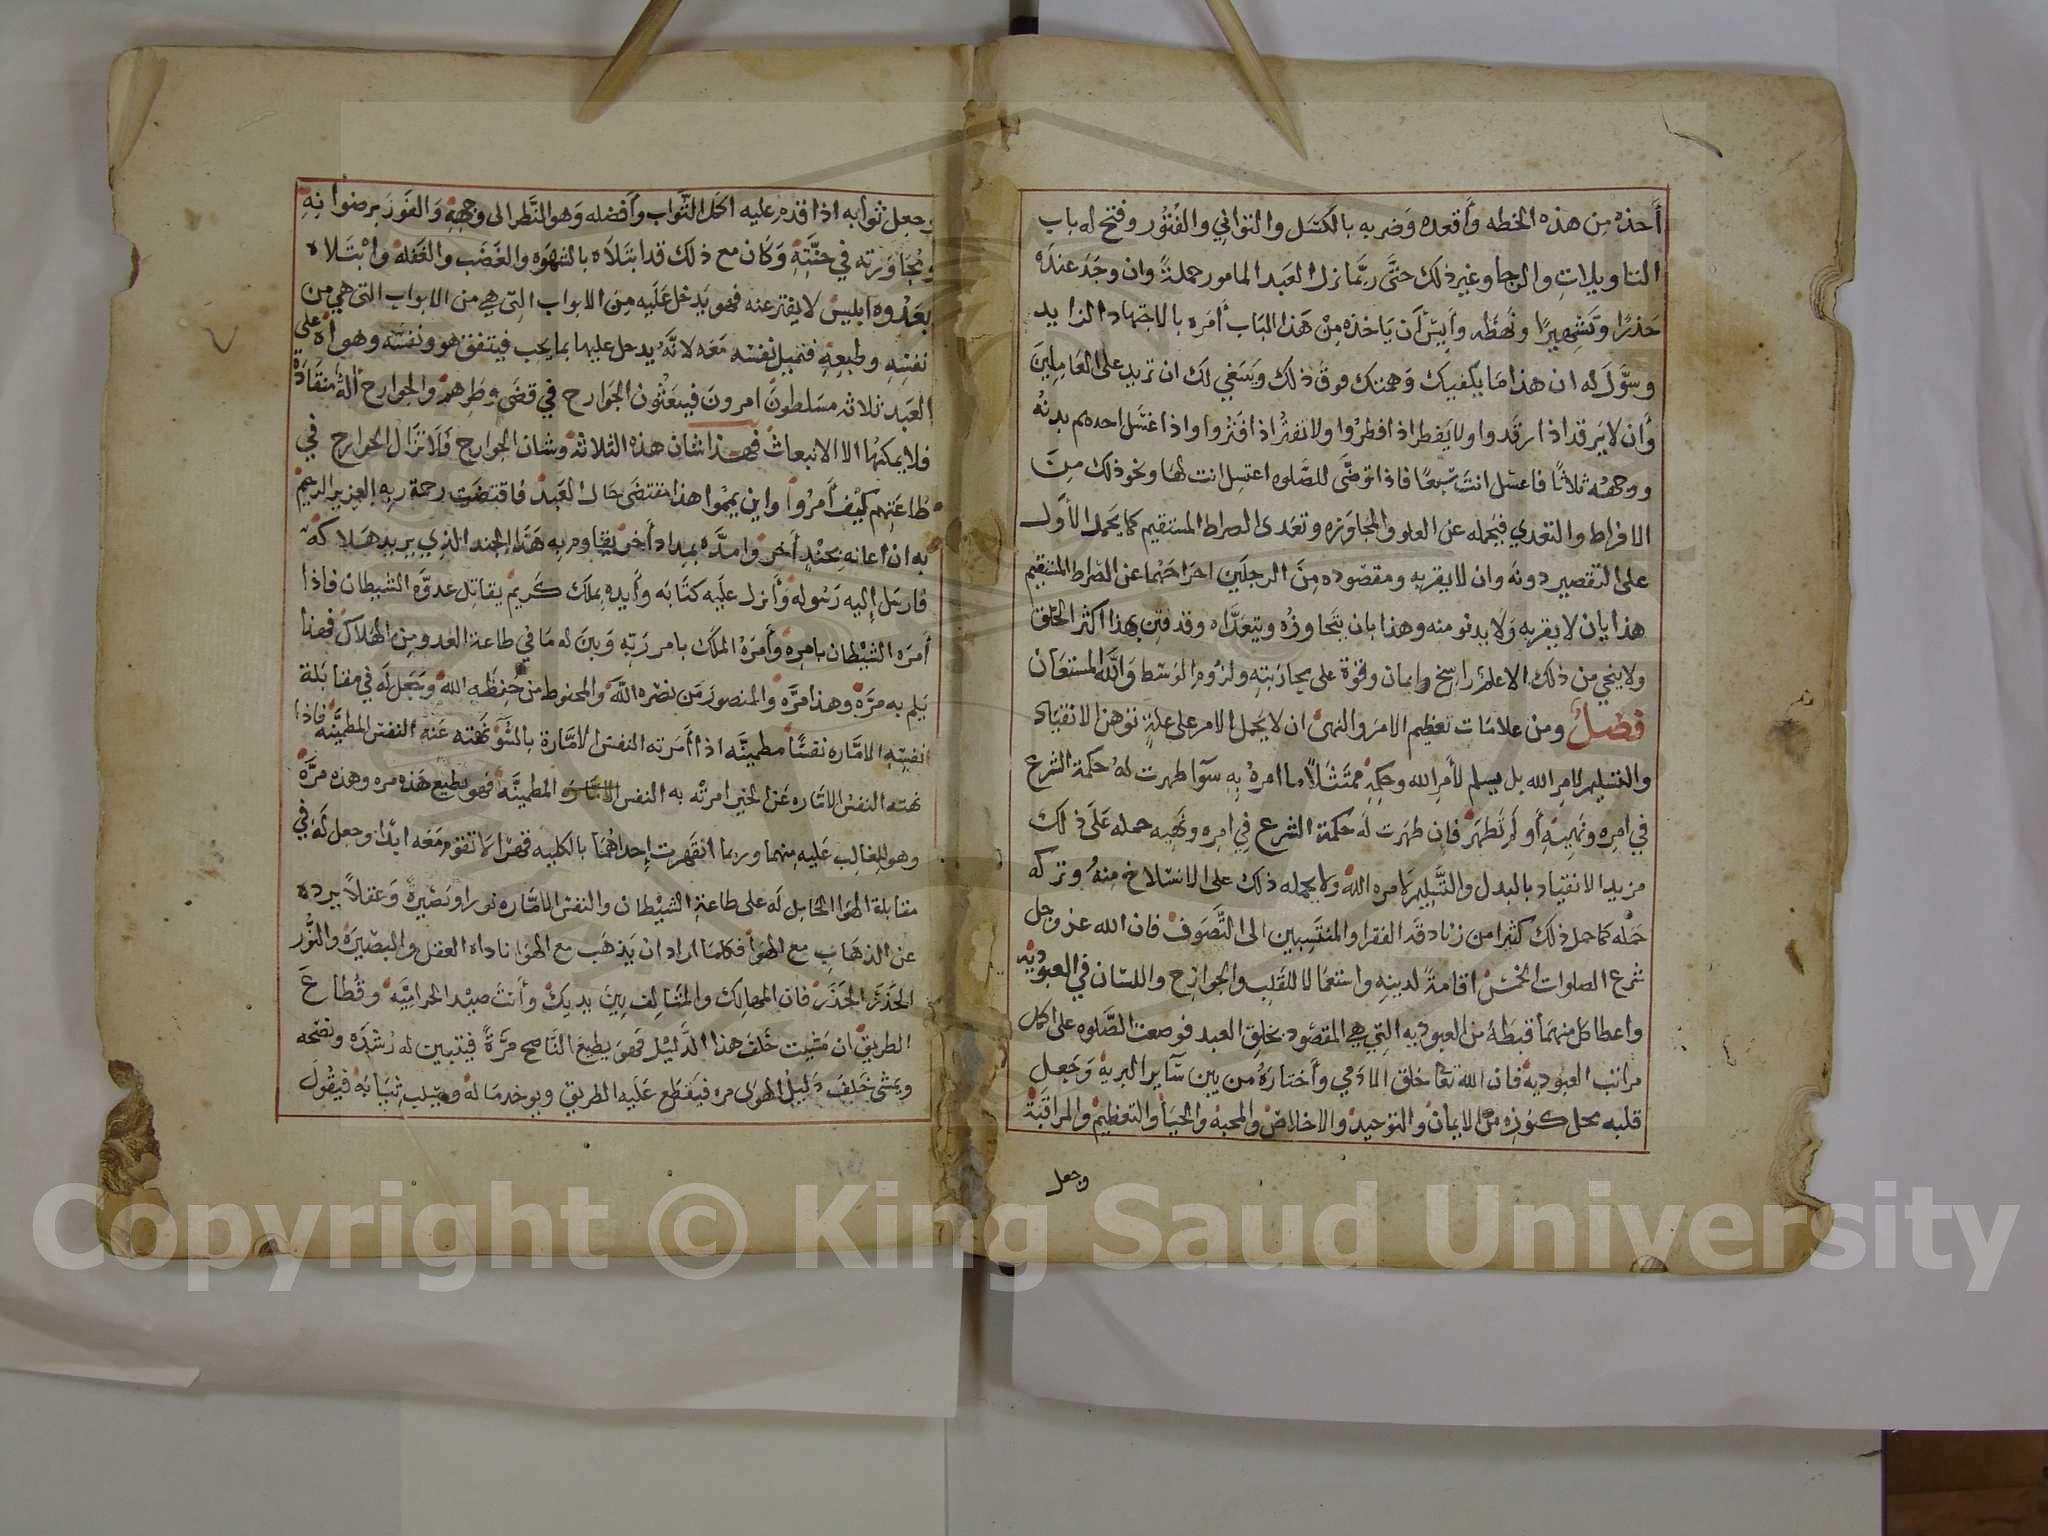 أحذه من هذه الخطه وأقعده وضربه بالكسل والتواني والفتور وفتح له باب
التاويلات والرجا وغير ذلك حتى ربما نزل العبد المامور حملة وان وجد عنده
حذرا وتشهيرا ونهظه وأيس أن ياخذه من هذا الباب أمره بالاجتهاد الزايد
وسول له ان هذا ما يكفيك وهمتك فوق ذلك وينبغي لك ان تزيد على العاملين
وأن لا ترقد اذا رقدوا ولا يفطر اذا فطروا ولا تفتر اذا فتروا واذا غسل احدهم يديه
ووجهه ثلاثا فاغسل انت سبعا فاذا توضى للصلوه اغتسل انت لها ونحو ذلك من
الافراط والتعدي فيحمله عن الغلو والمجاوزه وتعدى الصراط المستقيم كما يحمل الأول
على التقصير دونه وان لا يقربه ومقصوده من الرجلين اخراجهما عن الصراط المستقيم
هذا بان لا يقربه ولا يدنو منه وهذا بان يتجاوزه ويتعداه وقد فتن بهذا اكثر الخلق
ولا ينجي من ذلك الا علم راسخ وايمان وقوة على محاربته ولزوم الوسط والله المستعان
فصل ومن علامات تعظيم الامر والنهى ان لا يحمل الامر على علة توهن الانقياد
والتسليم لامر الله بل يسلم لأمر الله وحكمه ممتثلا ما امره به سوا ظهرت له حكمة الشرع
في امره ونهيه أو لم تظهر فان ظهرت له حكمة الشرع في امره ونهيه حمله على ذلك
مزيد الانقياد بالبدل والتسليم لامره الله ولا يحمله ذلك على الانسلاخ منه وتركه
حمله كما حمل ذلك كثيرا من زنادقة الفقرا والمنتسبين الى التصوف فان الله عز وجل
شرع الصلوات الخمس اقامة لدينه واستعمالا للقلب والجوارح واللسان في العبوديه
واعطا كل منهما قبطه من العبوديه التي هي المقصود بخلق العبد فوضعت الصلوه على اكمل
مراتب العبوديه فان الله تعا خلق الادمي وأختاره من بين ساير البريه وجعل
قلبه محل كنوزه من الايمان والتوحيد والاخلاص والمحبه والحيا والتعظيم والمراقبة
وجعل
وجعل ثوابه اذا قدم عليه اكمل الثواب وأفضله وهو النظر الى وجهه والفوز برضوانه
ومجاورته في جنته وكان مع ذلك قد ابتلاه بالشهوه والغضب والغفله وابتلاه
بعدوه ابليس لا يفتر عنه فهو يدخل عليه من الابواب التي هي من الابواب التي هي من
نفسه وطبعه فتميل نفسه معه لانه يدخل عليها بما يحب فيتفق هو ونفسه وهواه على
العبد ثلاثه مسلطون امرون فيبعثون الجوارح في قضى وطرهم والجوارح ألة منقادة
فلا يمكنها الا الانبعاث فهذا شان هذه الثلاثه وشان الجوارح فلا تزال الجوارح في
طاعتهم كيف أمروا واين يمموا هذا مقتضى حال العبد فاقتضت رحمة ربه العزيز الرحيم
به ان اعانه بجند أخر وامده بمداد أخر يقاوم به هذا الجند الذي يريد هلاكه
فارسل إليه رسوله وأنزل عليه كتابه وأيده بملك كريم يقاتل عدوه الشيطان فاذا
أمره الشيطان بامره وأمره الملك بامر ربه وبين له ما في طاعة العدو من الهلاك فهذا
يلم به مره وهذا مره والمنصور من نصره الله والمحفوظ من حفظه الله وجعل له في مقابلة
نفسه الاماره نفسا مطمينه اذا أمرته النفس الامارة بالسو نهته عنه النفس المطمينه فاذا
نهته النفس الاماره عن الخير امرته به النفس المطمينه فهو يطيع هذه مره وهذه مره
وهو للغالب عليه منهما وربما انقهرت إحداهما بالكليه قهرا لا تقوم معه ابدا وجعل له في
مقابلة الهوا الحامل له على طاعة الشيطان والنفس الاماره نورا وبصيرة وعقلا يرده
عن الذهاب مع الهوا فكلما اراد ان يذهب مع الهوا ناداه العقل والبصيره والنور
الحذر الحذر فان المهالك والمتالف بين يديك وأنت صيد الحراميه وقطاع
الطريق ان مشيت خلف هذا الدليل فهو يطيع الناصح مرة فيتبين له رشده ونصحه
ويمشي خلف دليل الهوى مره فيقطع عليه الطريق ويوخد ماله ويسلب ثيابه فيقول
Copyright © King Saud University